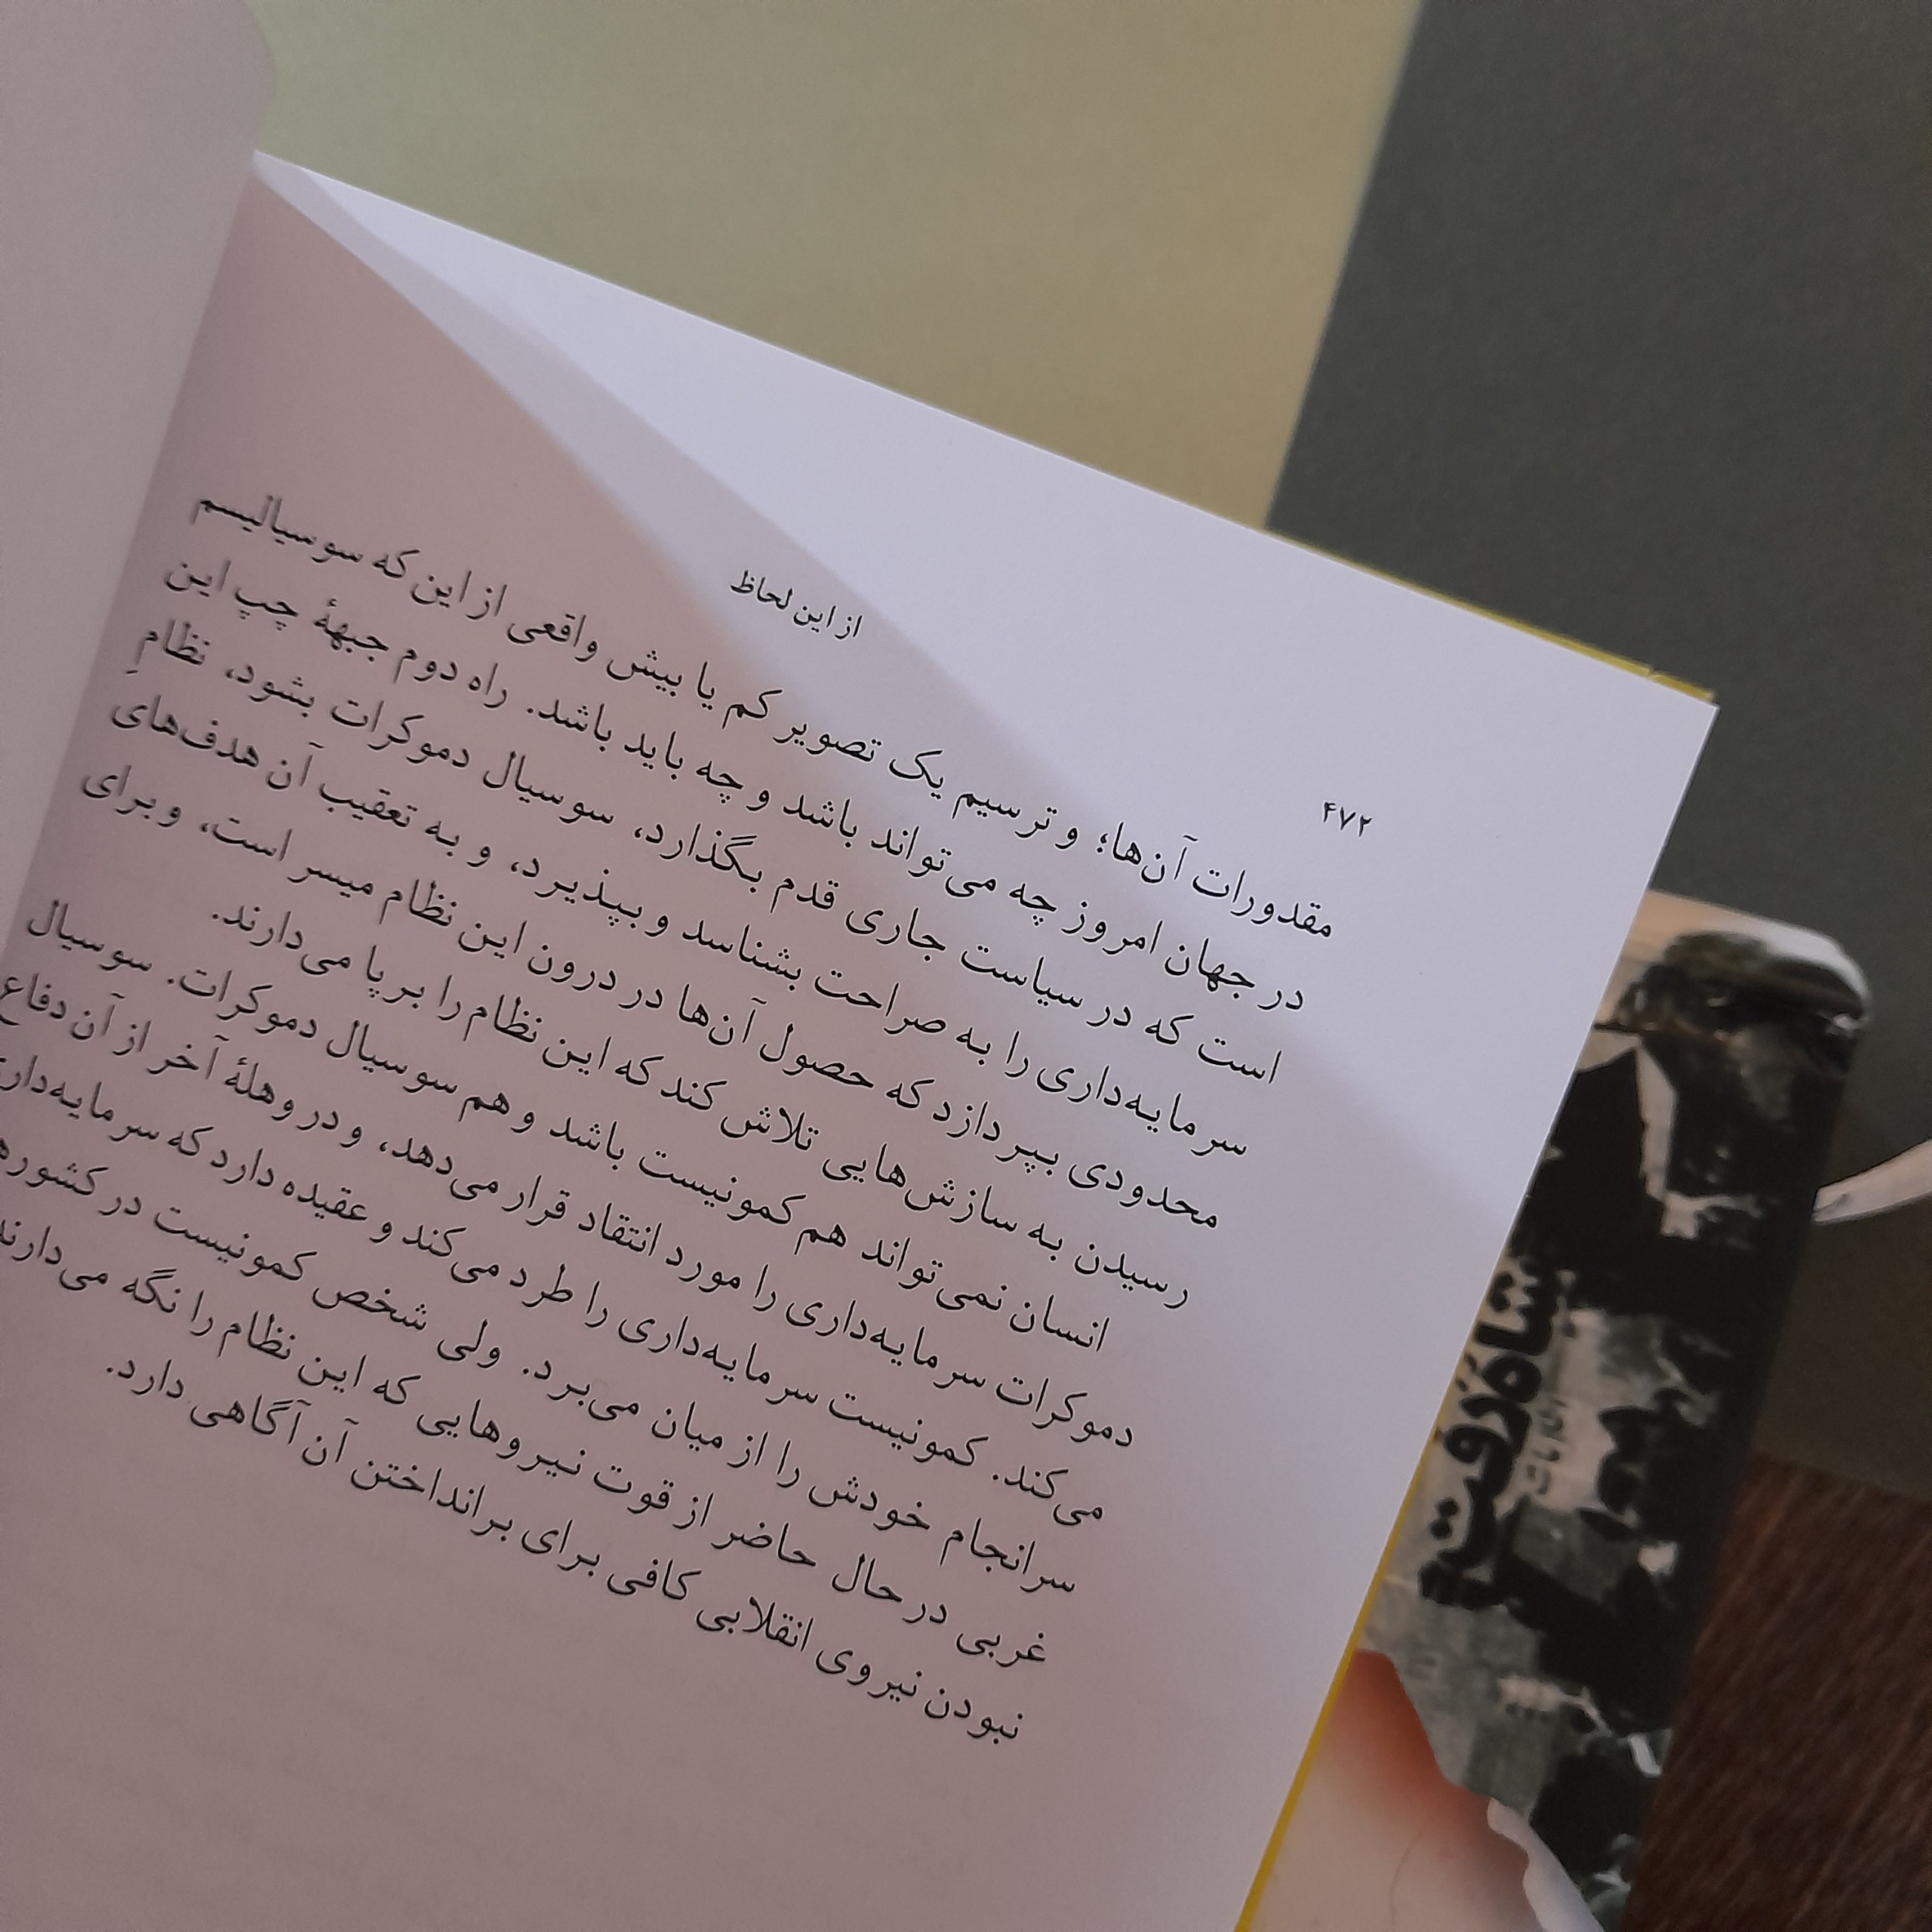 از این لحاظ
۴۷۲
مقدورات آن‌ها؛ و ترسیم یک تصویر کم یا بیش واقعی از این‌که سوسیالیسم
در جهان امروز چه می‌تواند باشد و چه باید باشد. راه دوم جبههٔ چپ این
است که در سیاست جاری قدم بگذارد، سوسیال دموکرات بشود، نظامِ
سرمایه‌داری را به صراحت بشناسد و بپذیرد، و به تعقیب آن هدف‌های
محدودی بپردازد که حصول آن‌ها در درون این نظام میسر است، و برای
رسیدن به سازش‌هایی تلاش کند که این نظام را برپا می‌دارند.
انسان نمی‌تواند هم کمونیست باشد و هم سوسیال دموکرات. سوسیال
دموکرات سرمایه‌داری را مورد انتقاد قرار می‌دهد، و در وهلهٔ آخر از آن دفاع
می‌کند. کمونیست سرمایه‌داری را طرد می‌کند و عقیده دارد که سرمایه‌داری
سرانجام خودش را از میان می‌برد. ولی شخص کمونیست در کشورها
غربی در حال حاضر از قوت نیروهایی که این نظام را نگه می‌دارند
نبودن نیروی انقلابی کافی برای برانداختن آن آگاهی دارد.
شاه رفت